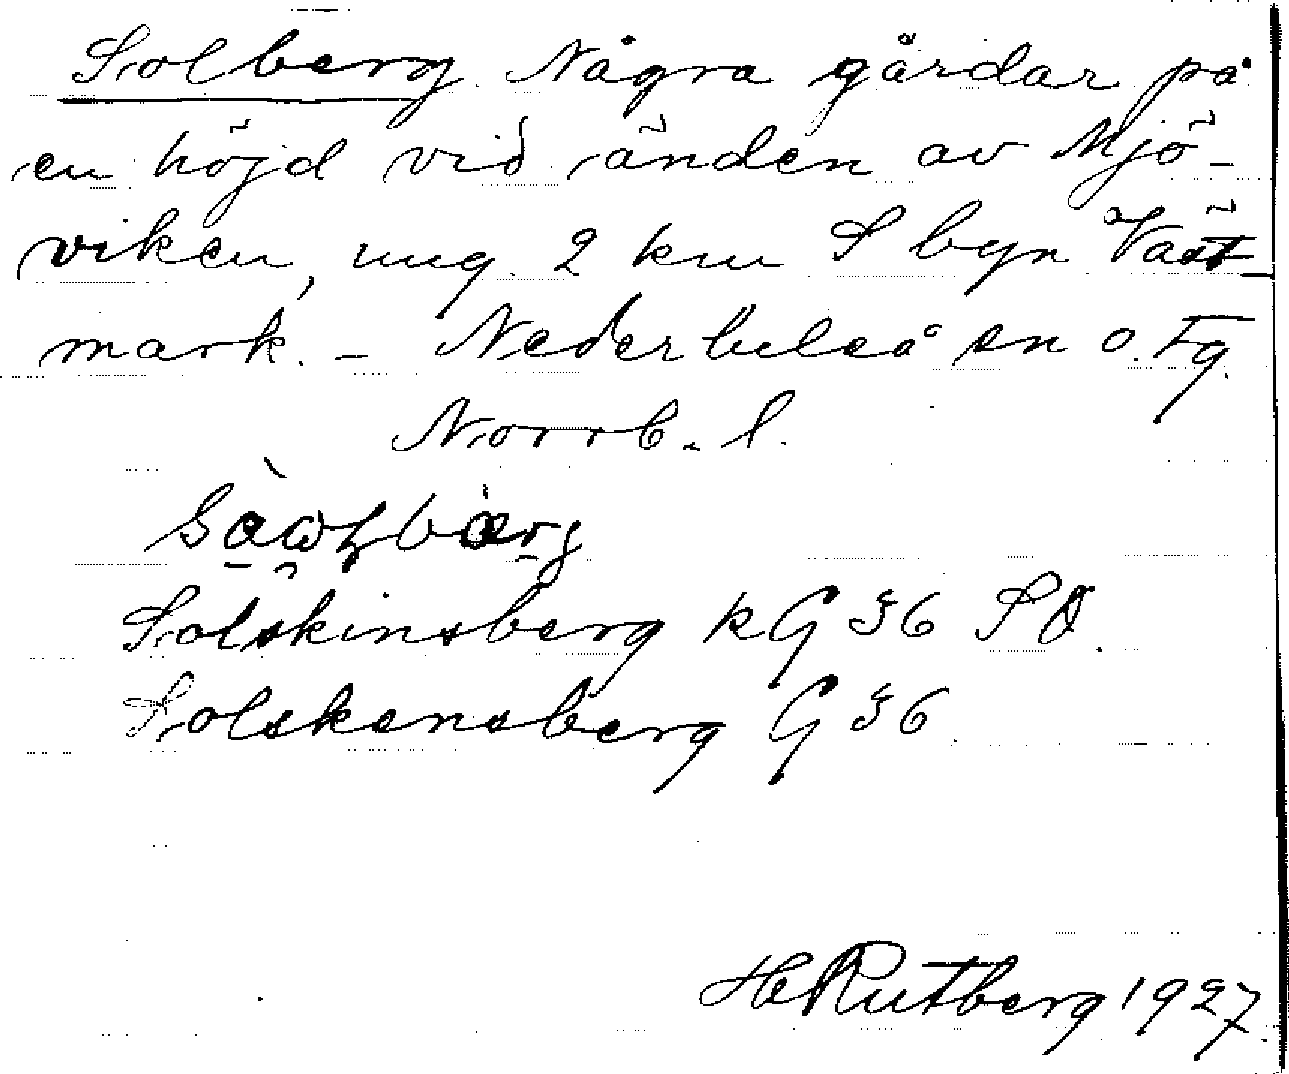 Solberg Några gårdar på
en höjd vid änden av Mjö-
viken, ung. 2 km S byn Väst-
mark. - Nederluleå sn o. Fg.
Norrb. l.
Solskinsberg kG 36 SO.
Solskensberg G 36
HRutberg 1927